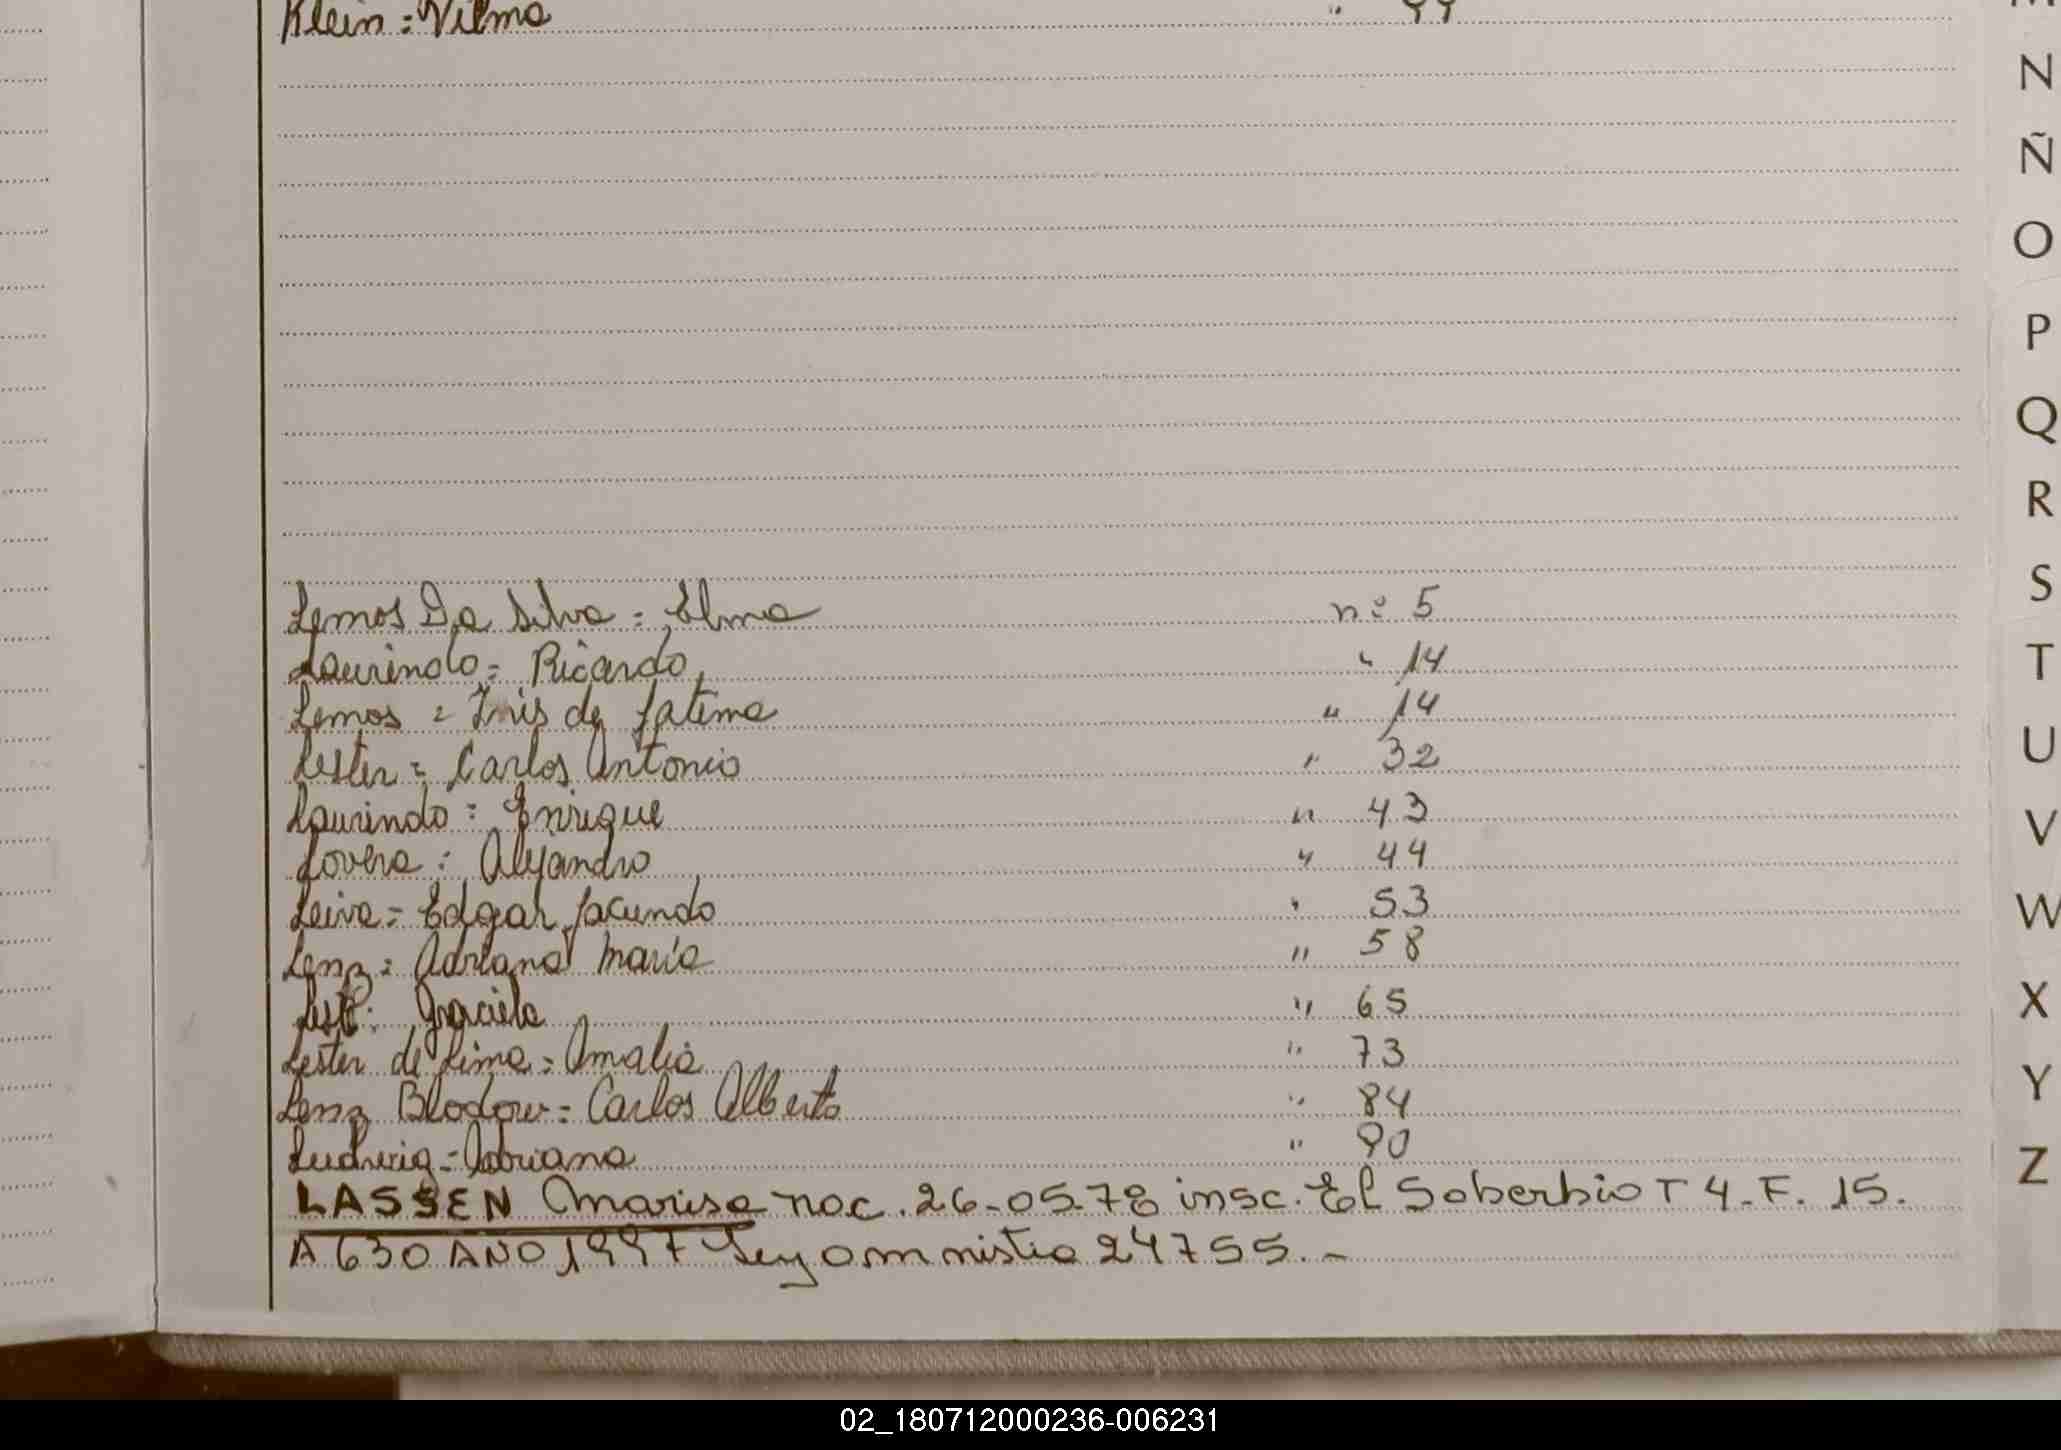 Klein = Vilma " 99
N
Ñ
O
P
Q
R
S
T
U
V
W
X
Y
Z
Lemos Da Silva = Elma nº 5
Laurindo = Ricardo " 14
Lemos = Inis de fatima " 14
Lester = Carlos Antonio " 32
Laurindo = Enrique " 43
Lovera : Alejandro " 44
Leiva = Edgar facundo " 53
Lenz = Adriana maría " 58
Graciela " 65
Lester de Lima = Amalia " 73
Lenz Blodow = Carlos Alberto " 84
Ludwig = Adriana " 90
LASSEN Marisa nac. 26-05-78 insc. El Soberbio T 4. F. 15.
A 630 AÑO 1997 Ley amnistia 24755. -
02_180712000236-006231